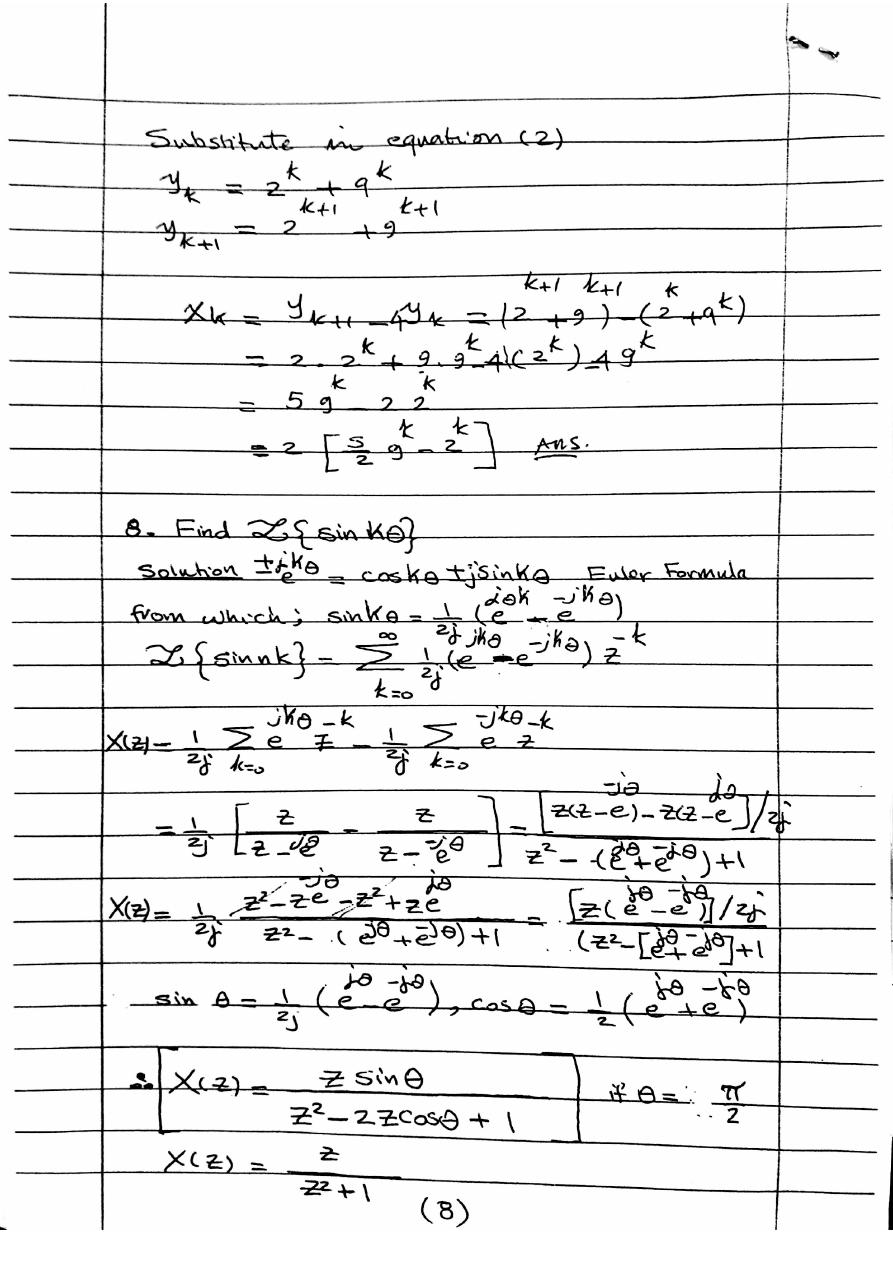 Substitute in equation (2)
y_k = 2^k + 9^k
y_{k+1} = 2^{k+1} + 9^{k+1}
x_k = y_{k+1} - 4y_k = (2^{k+1} + 9^{k+1}) - (2^k + 9^k)
= 2 . 2^k + 9 . 9^k - 4(2^k) - 4 9^k
= 5 9^k - 2 2^k
= 2 [5/2 9^k - 2^k] Ans.
8. Find Z{sin kθ}
Solution e^{±jkθ} = cos kθ ± j sin kθ Euler Formula
from which; sin kθ = 1/2j (e^{jθk} - e^{-jkθ})
Z{sin nk} = Σ_{k=0}^{∞} 1/2j (e^{jkθ} - e^{-jkθ}) z^{-k}
X(z) = 1/2j Σ_{k=0} e^{jkθ} z^{-k} - 1/2j Σ_{k=0} e^{-jkθ} z^{-k}
= 1/2j [z/(z - e^{jθ}) - z/(z - e^{-jθ})] = [z(z - e^{-jθ}) - z(z - e^{jθ}]/2j / z² - (e^{jθ} + e^{-jθ}) + 1
X(z) = 1/2j z² - z e^{-jθ} - z² + z e^{jθ} / z² - (e^{jθ} + e^{-jθ}) + 1 = [z(e^{jθ} - e^{-jθ})]/2j / (z² - [e^{jθ} + e^{-jθ}] + 1
sin θ = 1/2j (e^{jθ} - e^{-jθ}), cos θ = 1/2 (e^{jθ} + e^{-jθ})
∴ X(z) = z sin θ / z² - 2z cos θ + 1 if θ = π/2
X(z) = z / z² + 1
(8)